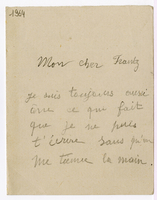 1904
Mon cher Frantz
je suis toujours
ce que fait
que je ne puis
t'écrire sans qu'on
me tienne la main.